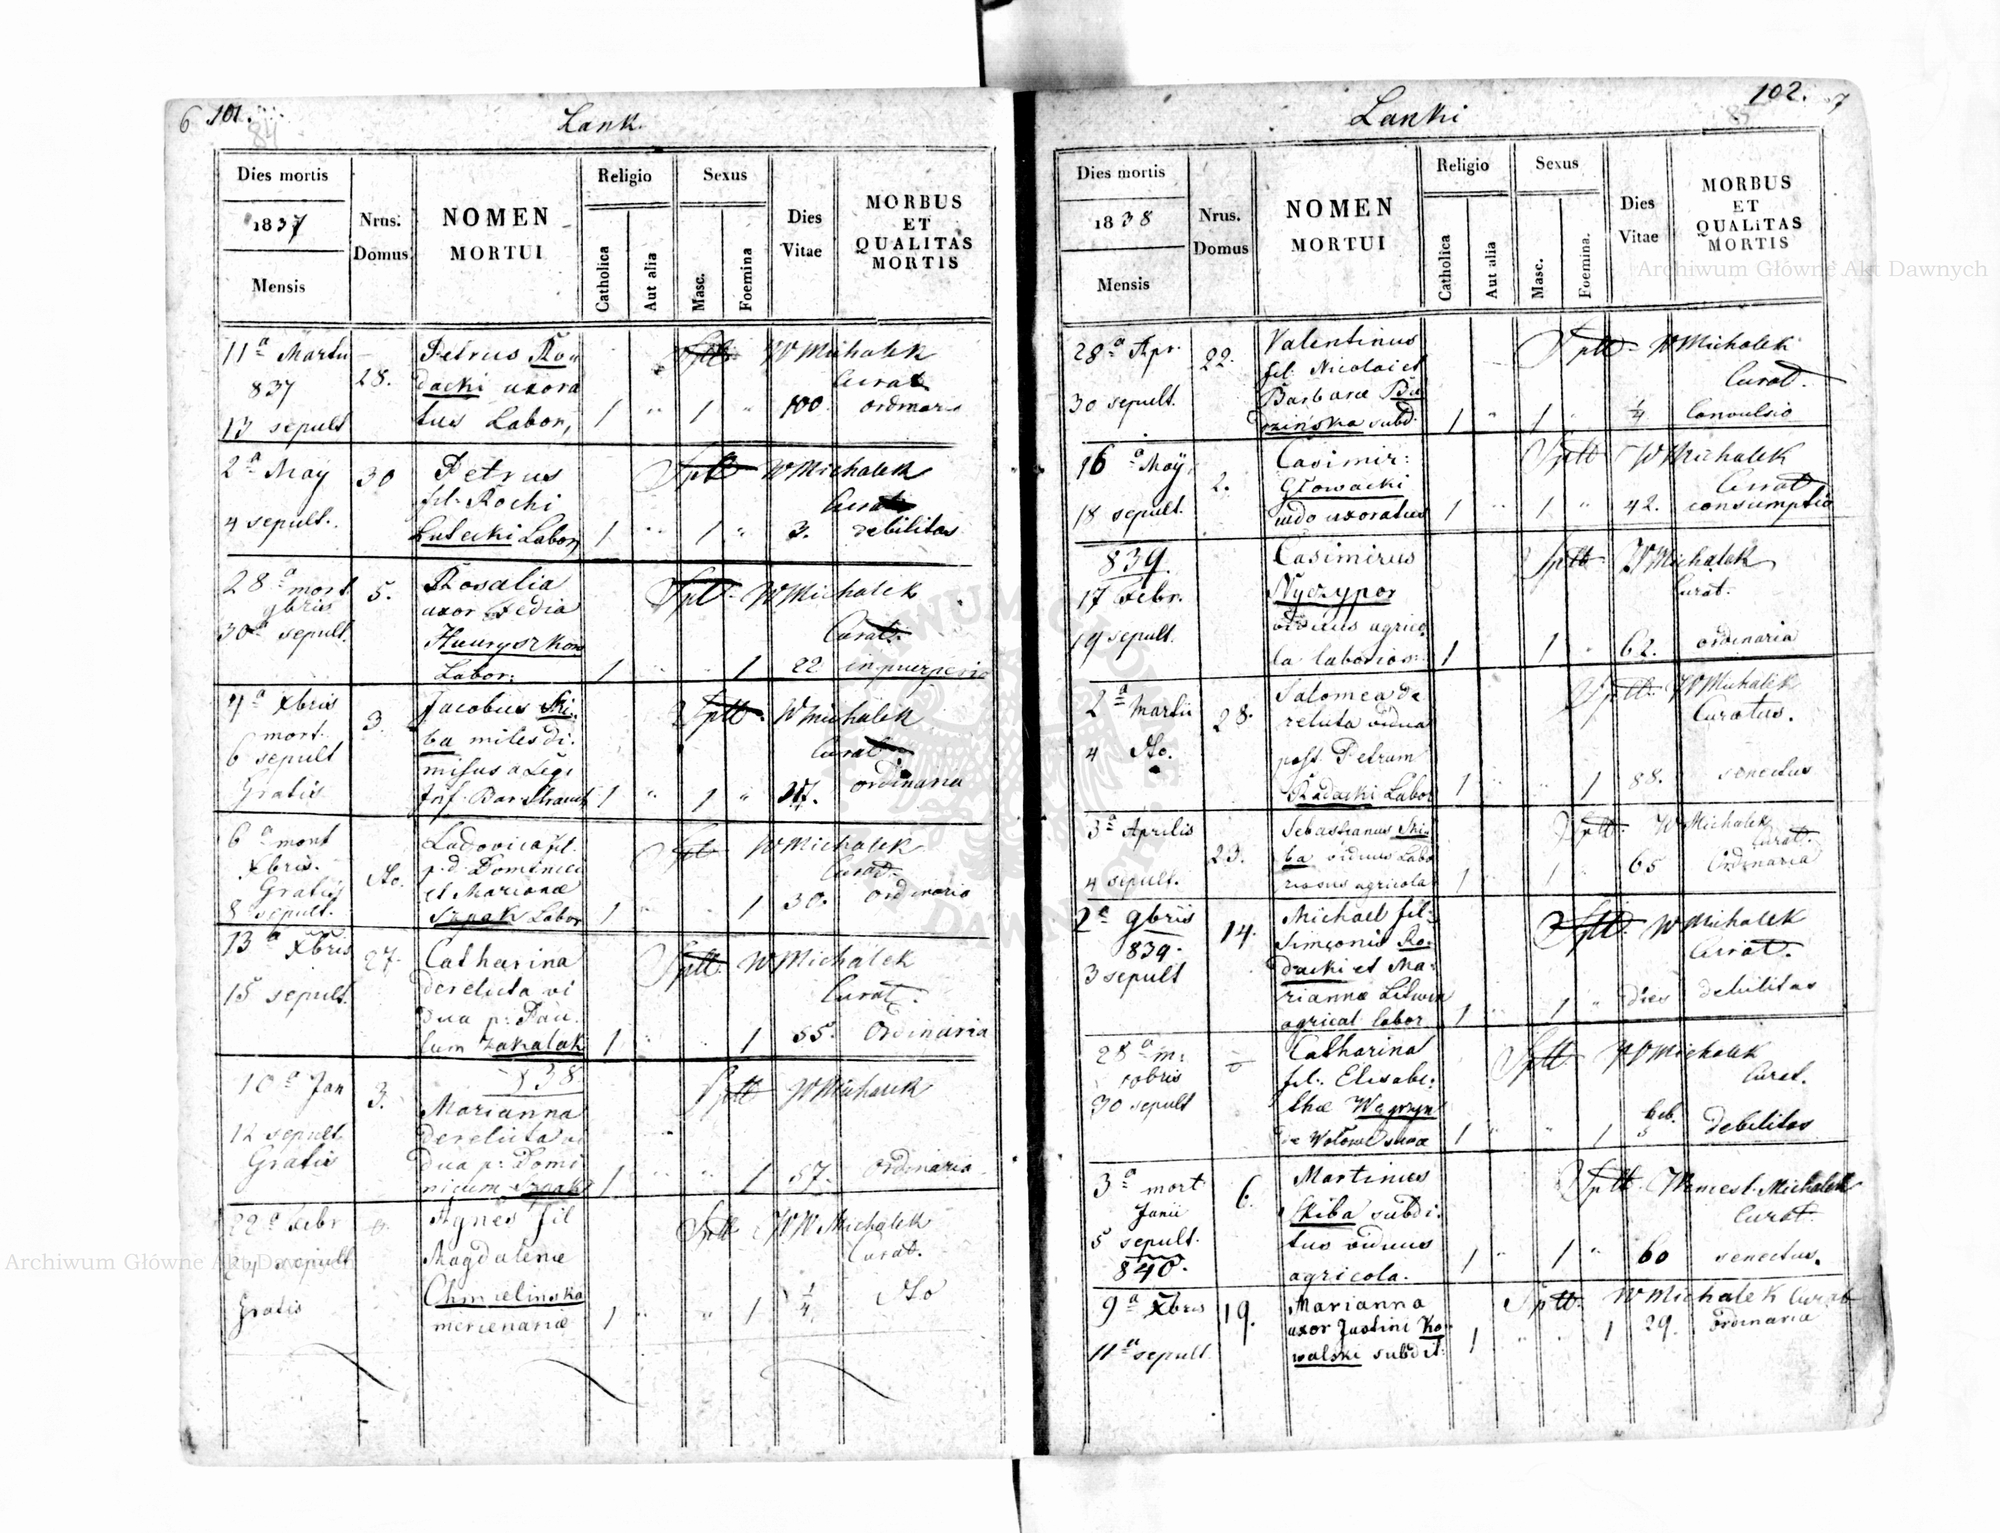 6 101.
84
Lank.
Dies mortis
1837
Mensis
Nrus. Domus
NOMEN
MORTUI
Religio
Catholica
Aut alia
Sexus
Masc.
Foemina
Dies
Vitae
MORBUS
ET
QUALITAS
MORTIS
11a Martii
837
13 sepult
28.
Petrus Ro
dacki uxora
tus Labor,
1 " 1 " 100.
Sptt W Michalek
Curat
ordinar
2a May
4 sepult.
30
Petrus
fil. Rochi
Lutecki Labor
1 " 1 " 3.
Sptt W Michalek
Curat
debilitas
28a mort
9bris
30a sepult.
5.
Rosalia
uxor Fedia
Labor:
1 " " 1 22
Sptt W Michalek
Curat.
in puerperio
4a Xbris
mort.
6 sepult
Gratis
3.
Jacobus Ski
ba miles di
misus a Legi
1 " 1 "
Sptt W Michalek
Curat
ordinaria
6a mort
Xbris.
Gratis
8 sepult.
Ludovica fil.
p. d. Dominici
et Marianæ
Szpak Labor
1 " 1 30.
Sptt W Michalek
Curat.
ordinaria
13a Xbris
15 sepult.
27.
Catharina
derelicta vi
dua p: Pau
lum Zakalak
1 " 1 55.
Sptt W Michalek
Curat.
Ordinaria
10a Jan
12 sepult
Gratis
3.
838
Marianna
derelicta vi
dua p: Domi
nicum Szpak
1 " " 1 57.
Sptt W Michalek
ordinaria
22a Febr
24 sepult
Gratis
Agnes fil
Magdalenæ
Chmielinska
mercenariæ
1 " " 1 1/4
Sptt W Michalek
Curat.
102. 7
Lanki
Dies mortis
1838
Mensis
Nrus.
Domus
NOMEN
MORTUI
Religio
Catholica
Aut alia
Sexus
Masc.
Foemina.
Dies
Vitae
MORBUS
ET
QUALITAS
MORTIS
28a Apr.
30 sepult.
22.
Valentinus
fil. Nicolai et
Barbaræ
subd.
1 " 1 " 1/4
Sptt W Michalek
Curat.
Convulsio
16a May.
18 sepult.
2.
Casimir:
Głowacki
uxoratus
1 " 1 " 42.
Sptt W Michalek
Curat
consumptio
839.
17 Febr.
19 sepult.
Casimirus
Nyczypor
viduus agrico
la laborios:
1 1 " 62.
Sptt W Michalek
Curat.
ordinaria
2a Martii
4
28.
Salomea de
relicta vidua
post Petrum
Rodacki Labor
1 " " 1 88.
Sptt W Michalek
Curatus.
senectus
3a Aprilis
4 sepult.
23.
Sebastianus Ski
ba viduus Labo
riosus agricola
1 " 1 " 65
Sptt W Michalek
Curat.
Ordinaria
2a 9bris
839.
3 sepult
14.
Michael fil:
Simeonis Ro
dacki et Ma
riannæ Litwin
agricol labor
1 " 1 " dies
Sptt W Michalek
Curat.
debilitas
28a m:
30 sepult
Catharina
fil: Elisabe
thæ Węgrzyn
1 " " 1
Sptt W Michalek
Curat.
debilitas
3a mort
Junii
5 sepult.
840.
6.
Martinus
Skiba subdi
tus viduus
agricola.
1 " 1 " 60
Sptt Michalek
Curat.
senectus.
9a Xbris
11a sepult.
19.
Marianna
uxor Justini Ko
walski subdit:
1 " " 1 29.
Sptt W Michalek Curat
ordinaria
Archiwum Główne Akt Dawnych
Archiwum Główne Akt Dawnych